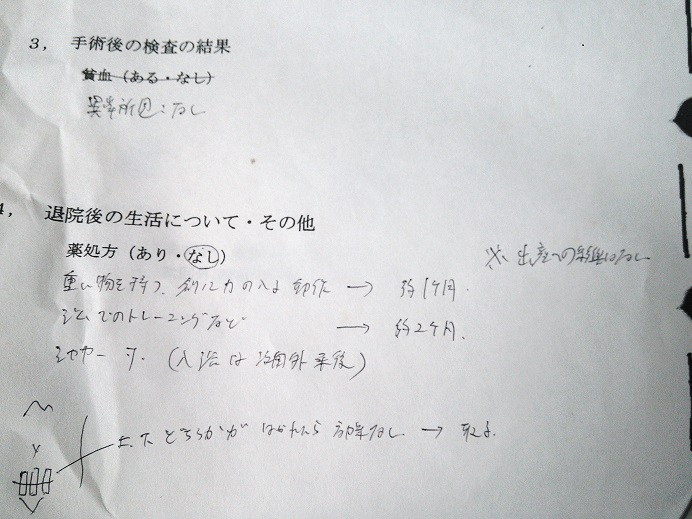 3, 手術後の検査の結果
貧血（ある・なし）
異常所見：なし
4, 退院後の生活について・その他
薬処方（あり・なし）
※ 出産への影響はなし
重い物を持つ、創に力の入る動作 → 約1ヶ月.
ジムでのトレーニングなど → 約2ヶ月.
シャワー可. （入浴は次回外来後）
上下どちらかが はがれたら 効果なし → 取る.